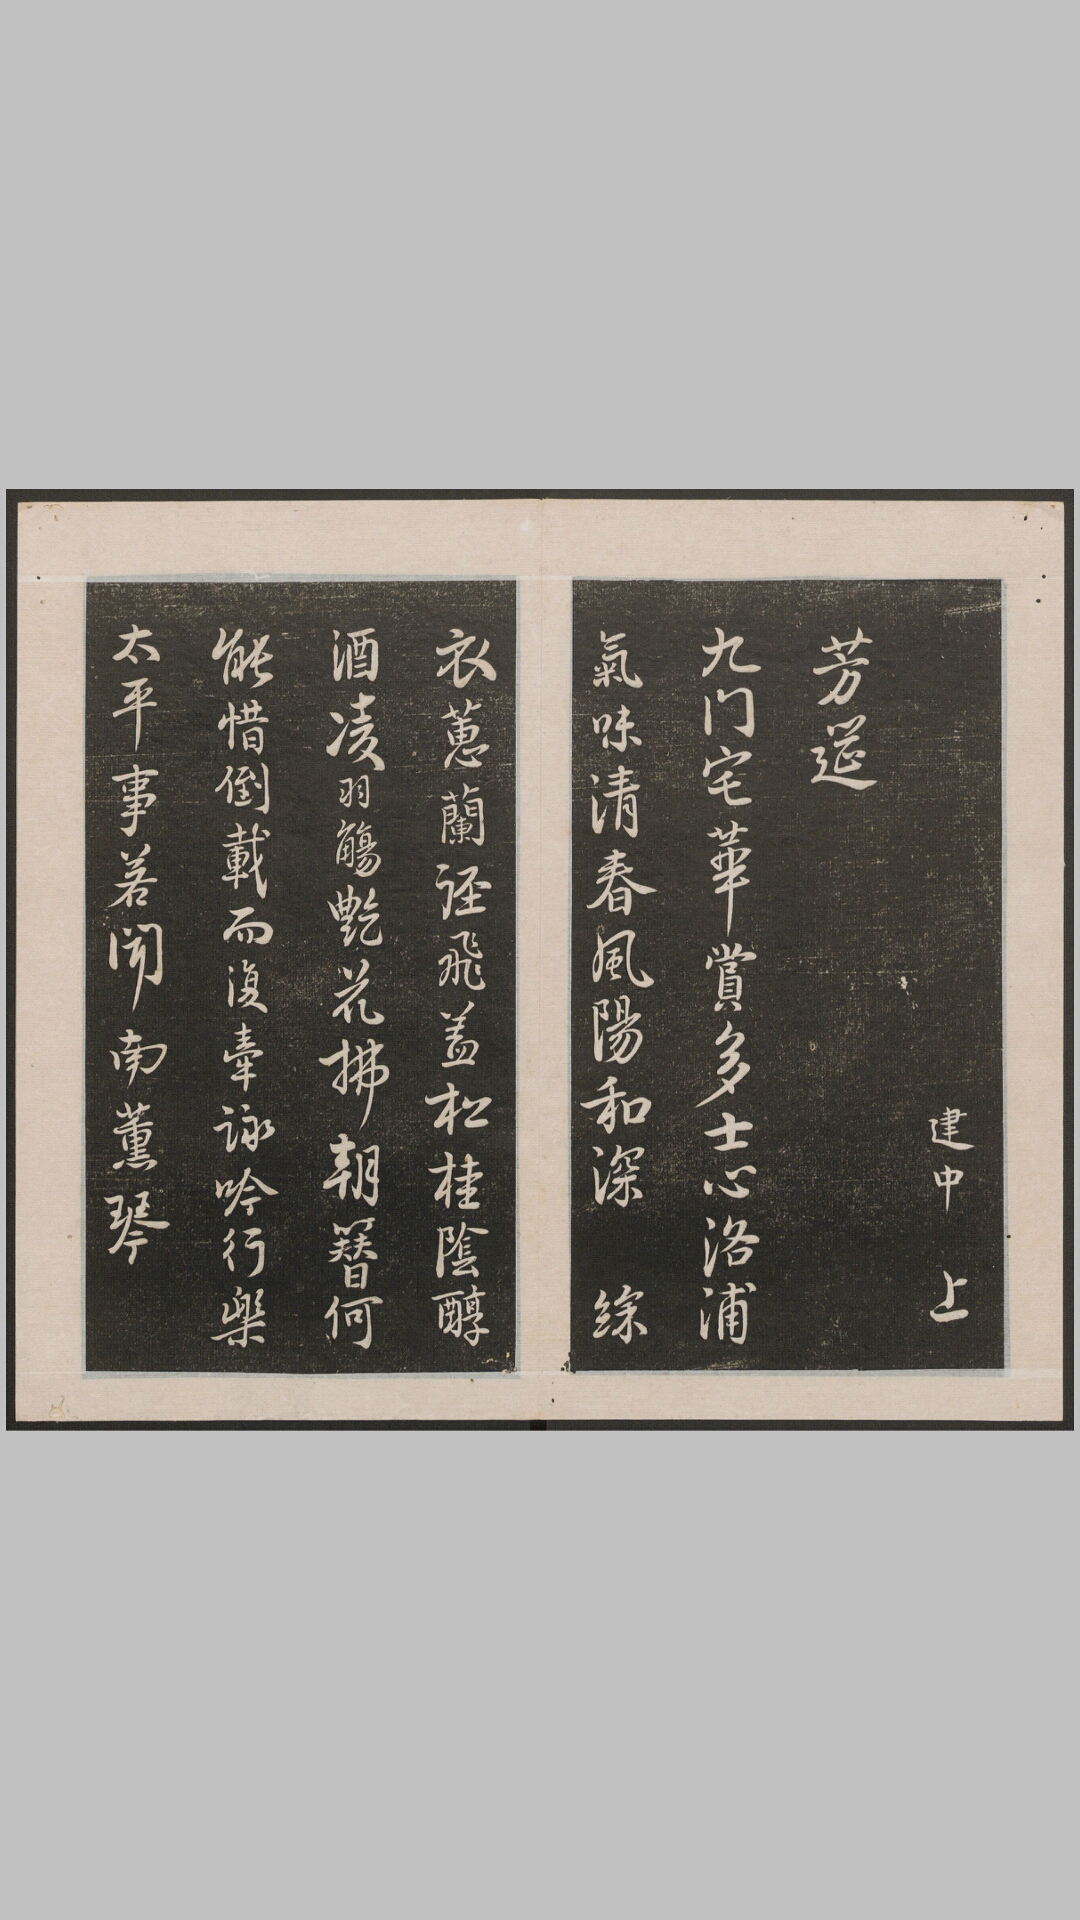 建中 上
芳筵
九門宅華賞多士心洛浦
氣味清春風陽和深 綜
衣蕙蘭徑飛蓋松桂陰醇
酒凌羽觴艷花拂朝簪何
能惜倒載而復牽詠吟行樂
太平事若聞南薰琴